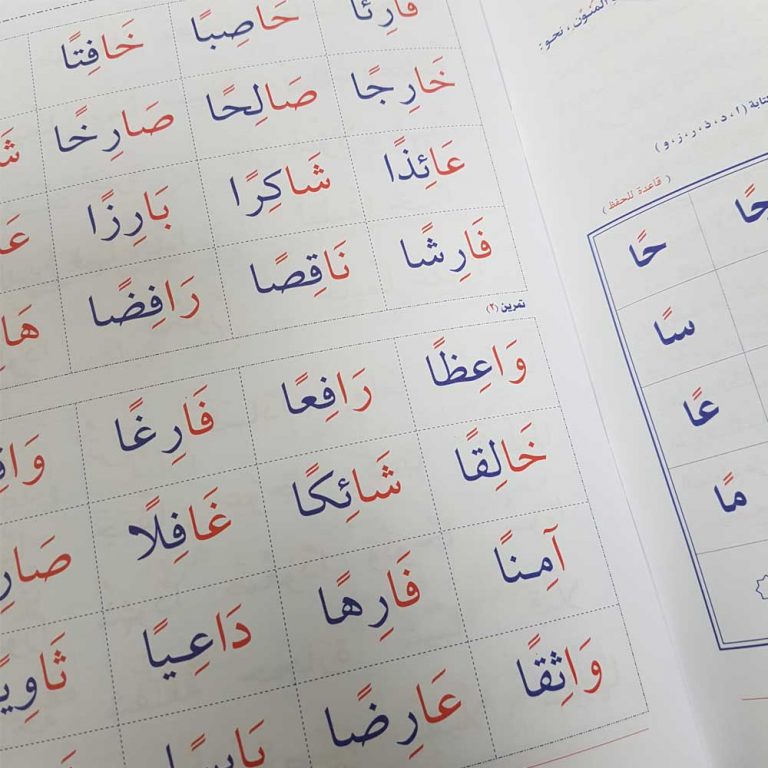 خَاصِبًا خَافِتًا
خَارِجًا صَالِحًا صَارِخًا
عَائِذًا شَاكِرًا بَارِزًا
فَارِشًا نَاقِصًا رَافِضًا
تمرين (٢)
وَاعِظًا رَافِعًا فَارِغًا
خَالِقًا شَائِكًا غَافِلًا
آمِنًا فَارِهًا دَاعِيًا
وَاثِقًا عَارِضًا
المُنَوَّن، نحو:
(ا، د، ذ، ر، ز، و)
(قاعدة للحفظ)
حًا
سًا
عًا
مًا